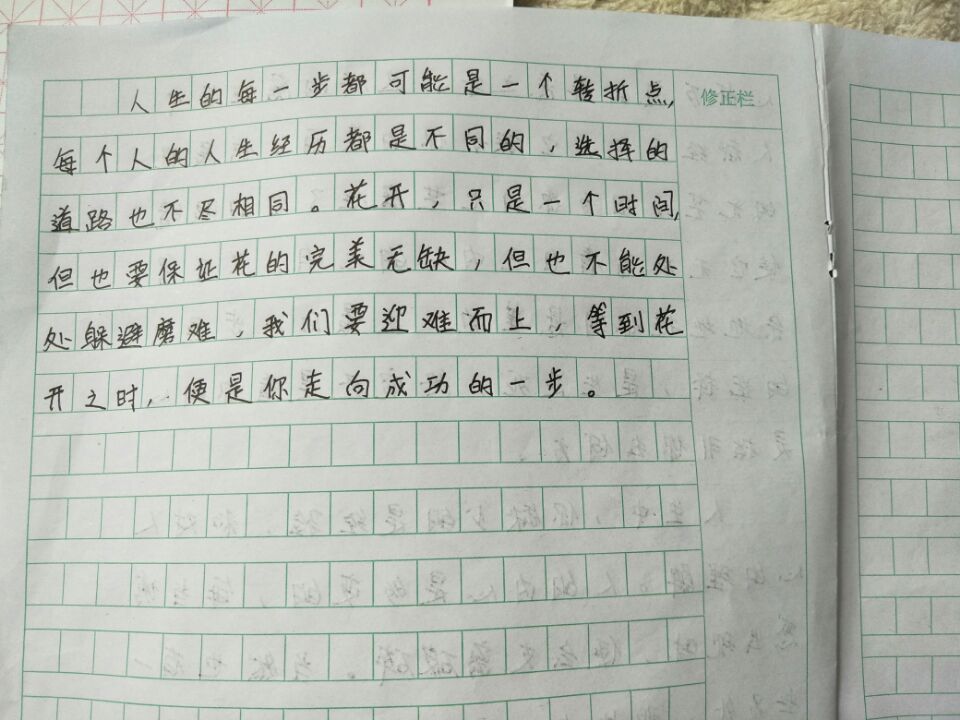 人生的每一步都可能是一个转折点,
修正栏
每个人的人生经历都是不同的，选择的
道路也不尽相同。花开，只是一个时间,
但也要保证花的完美无缺，但也不能处
处躲避磨难，我们要迎难而上，等到花
开之时，便是你走向成功的一步。